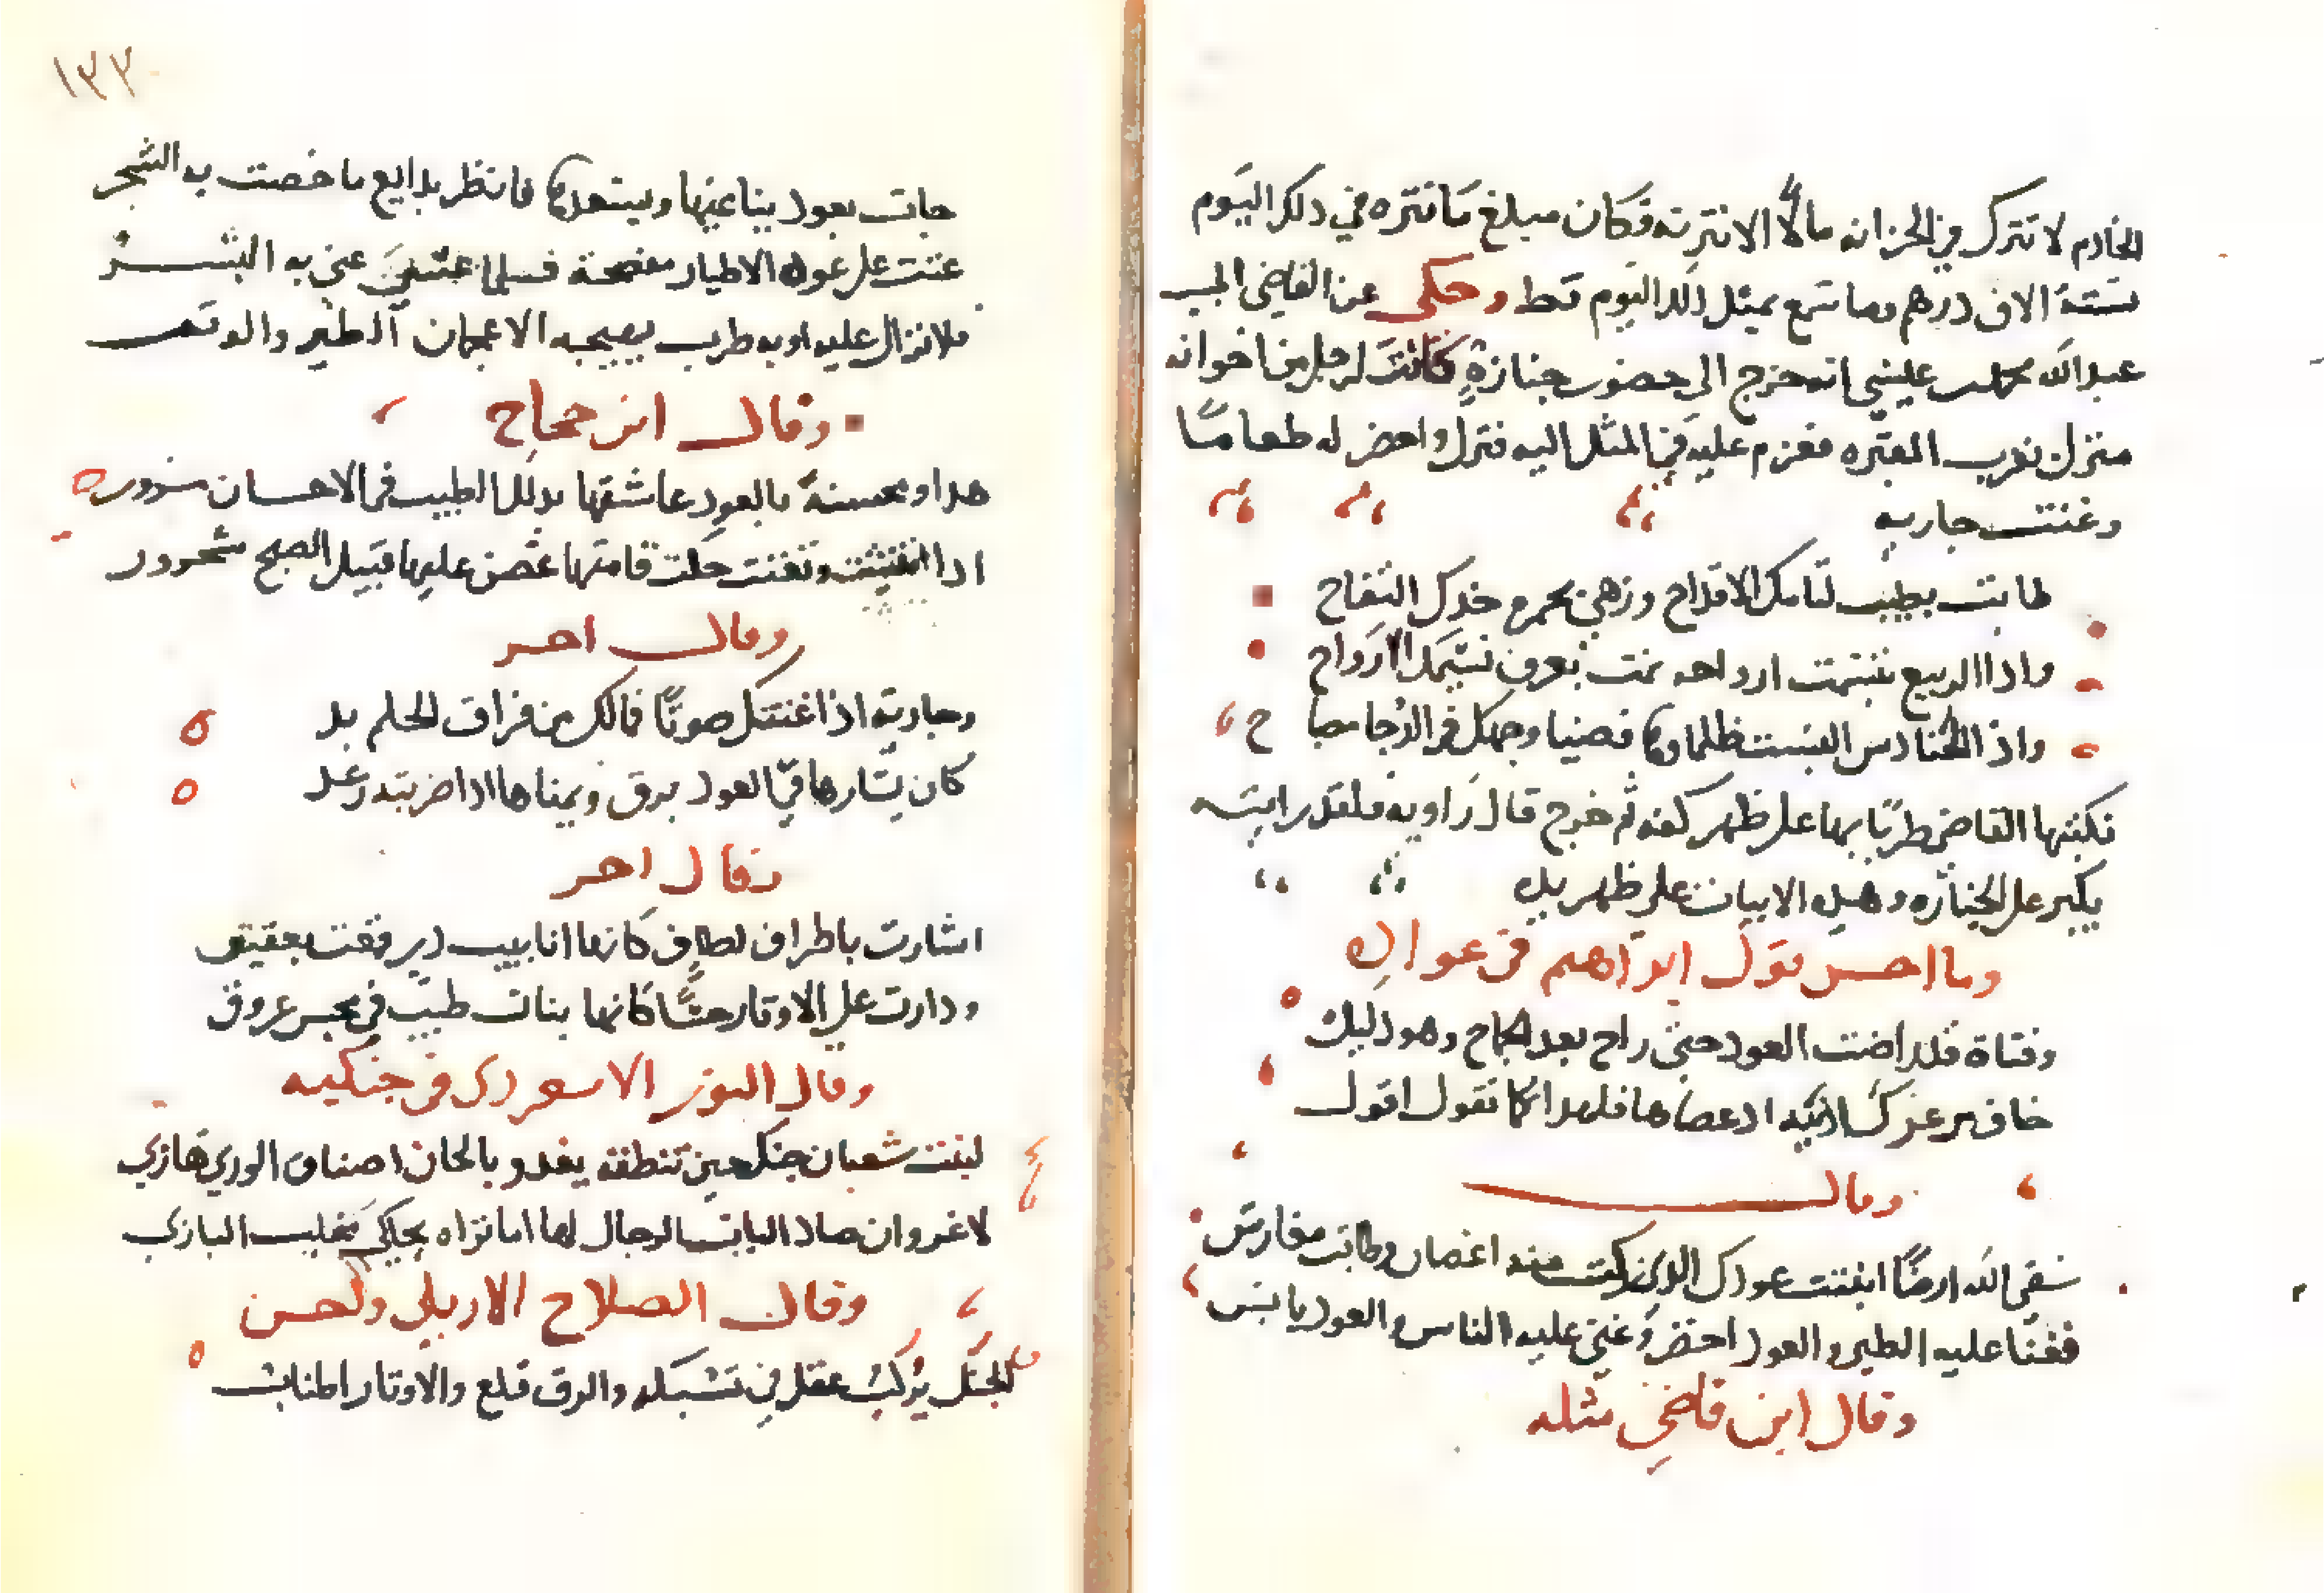 الخادم لا تترك في الخزانه مالا الا نترته فكان مبلغ ما نتره في دلك اليوم
ستة الاف درهم وما سمع بمثل دلك اليوم قط وحكى عن القاضي ابي
عبد الله محمد بن عيسي انه خرج الى حضور جنازة كانت لرجل من اخوانه
منزل بقرب المقبره فعزم عليه في الميل اليه فنزل واحضر له طعاما
وغنت جاريه
طابت بطيب لثامك الاقداح وزهي بحمرة خدك التفاح
واذا الربيع تنسمت ارواحه نمت بعرف نسيمك الارواح
واذا الحنادس البست ظلماوها فضيا وجهك في الدجا مصباح
فكتبها القاضي طربا بها على ظهر كفه ثم خرج قال راويه فلقد رايته
يكبر على الجنازه وهذه الابيات على ظهر يده
وما احسن قول ابراهيم في عواده
وفتاة قد راضت العود حتى راح بعد الجماح وهو ذليل
خاف من عرك اذنه اذ عصاها فلهدا كما تقول اقول
وقال
سقى الله ارضا انبتت عودك الذي زكت منه اغصان وطابت مغارس
فغنا عليه الطير والعود اخضر وغني عليه الناس والعود يابس
وقال ابن قاضي مثله
١٣٣
جات بعود يناغيها ويسعدها فانظر بدايع ما خصت به الشجر
غنت على عوده الاطيار مفصحة فلما عسي غني به البشر
فلا تزال عليه او به طرب يهيجه الاعجمان الطير والوتر
وقال ابن حجاج
هدا ومحسنة بالعود عاشقها بدلك الطيب في الاحسان مسرور
ادا انثنت وتغنت خلت قامتها غصن عليها قبيل الصبح شحرور
وقال اخر
وجارية اذا غنتك صوتا فمالك من فراق الحلم بد
كان يسارها في العود برق ويمناها ادا ضربته رعد
وقال اخر
اشارت باطراف لطاف كانها انابيب در قمعت بعقيق
ودارت على الاوتار حسا كانها بنات طبيب في مجس عروق
وقال النور الاسعردى في جنكيه
لبنت شعبان جنك حين تنطقه يغدو بالحان اصناف الورى هازي
لا غرو ان صاد الباب الرجال لها اما تراه يحاكي مخلب البازي
وقال الصلاح الاربلي ولحسن
الجنك يركب عقل في تشبكه والرق قلع والاوتار اطناب